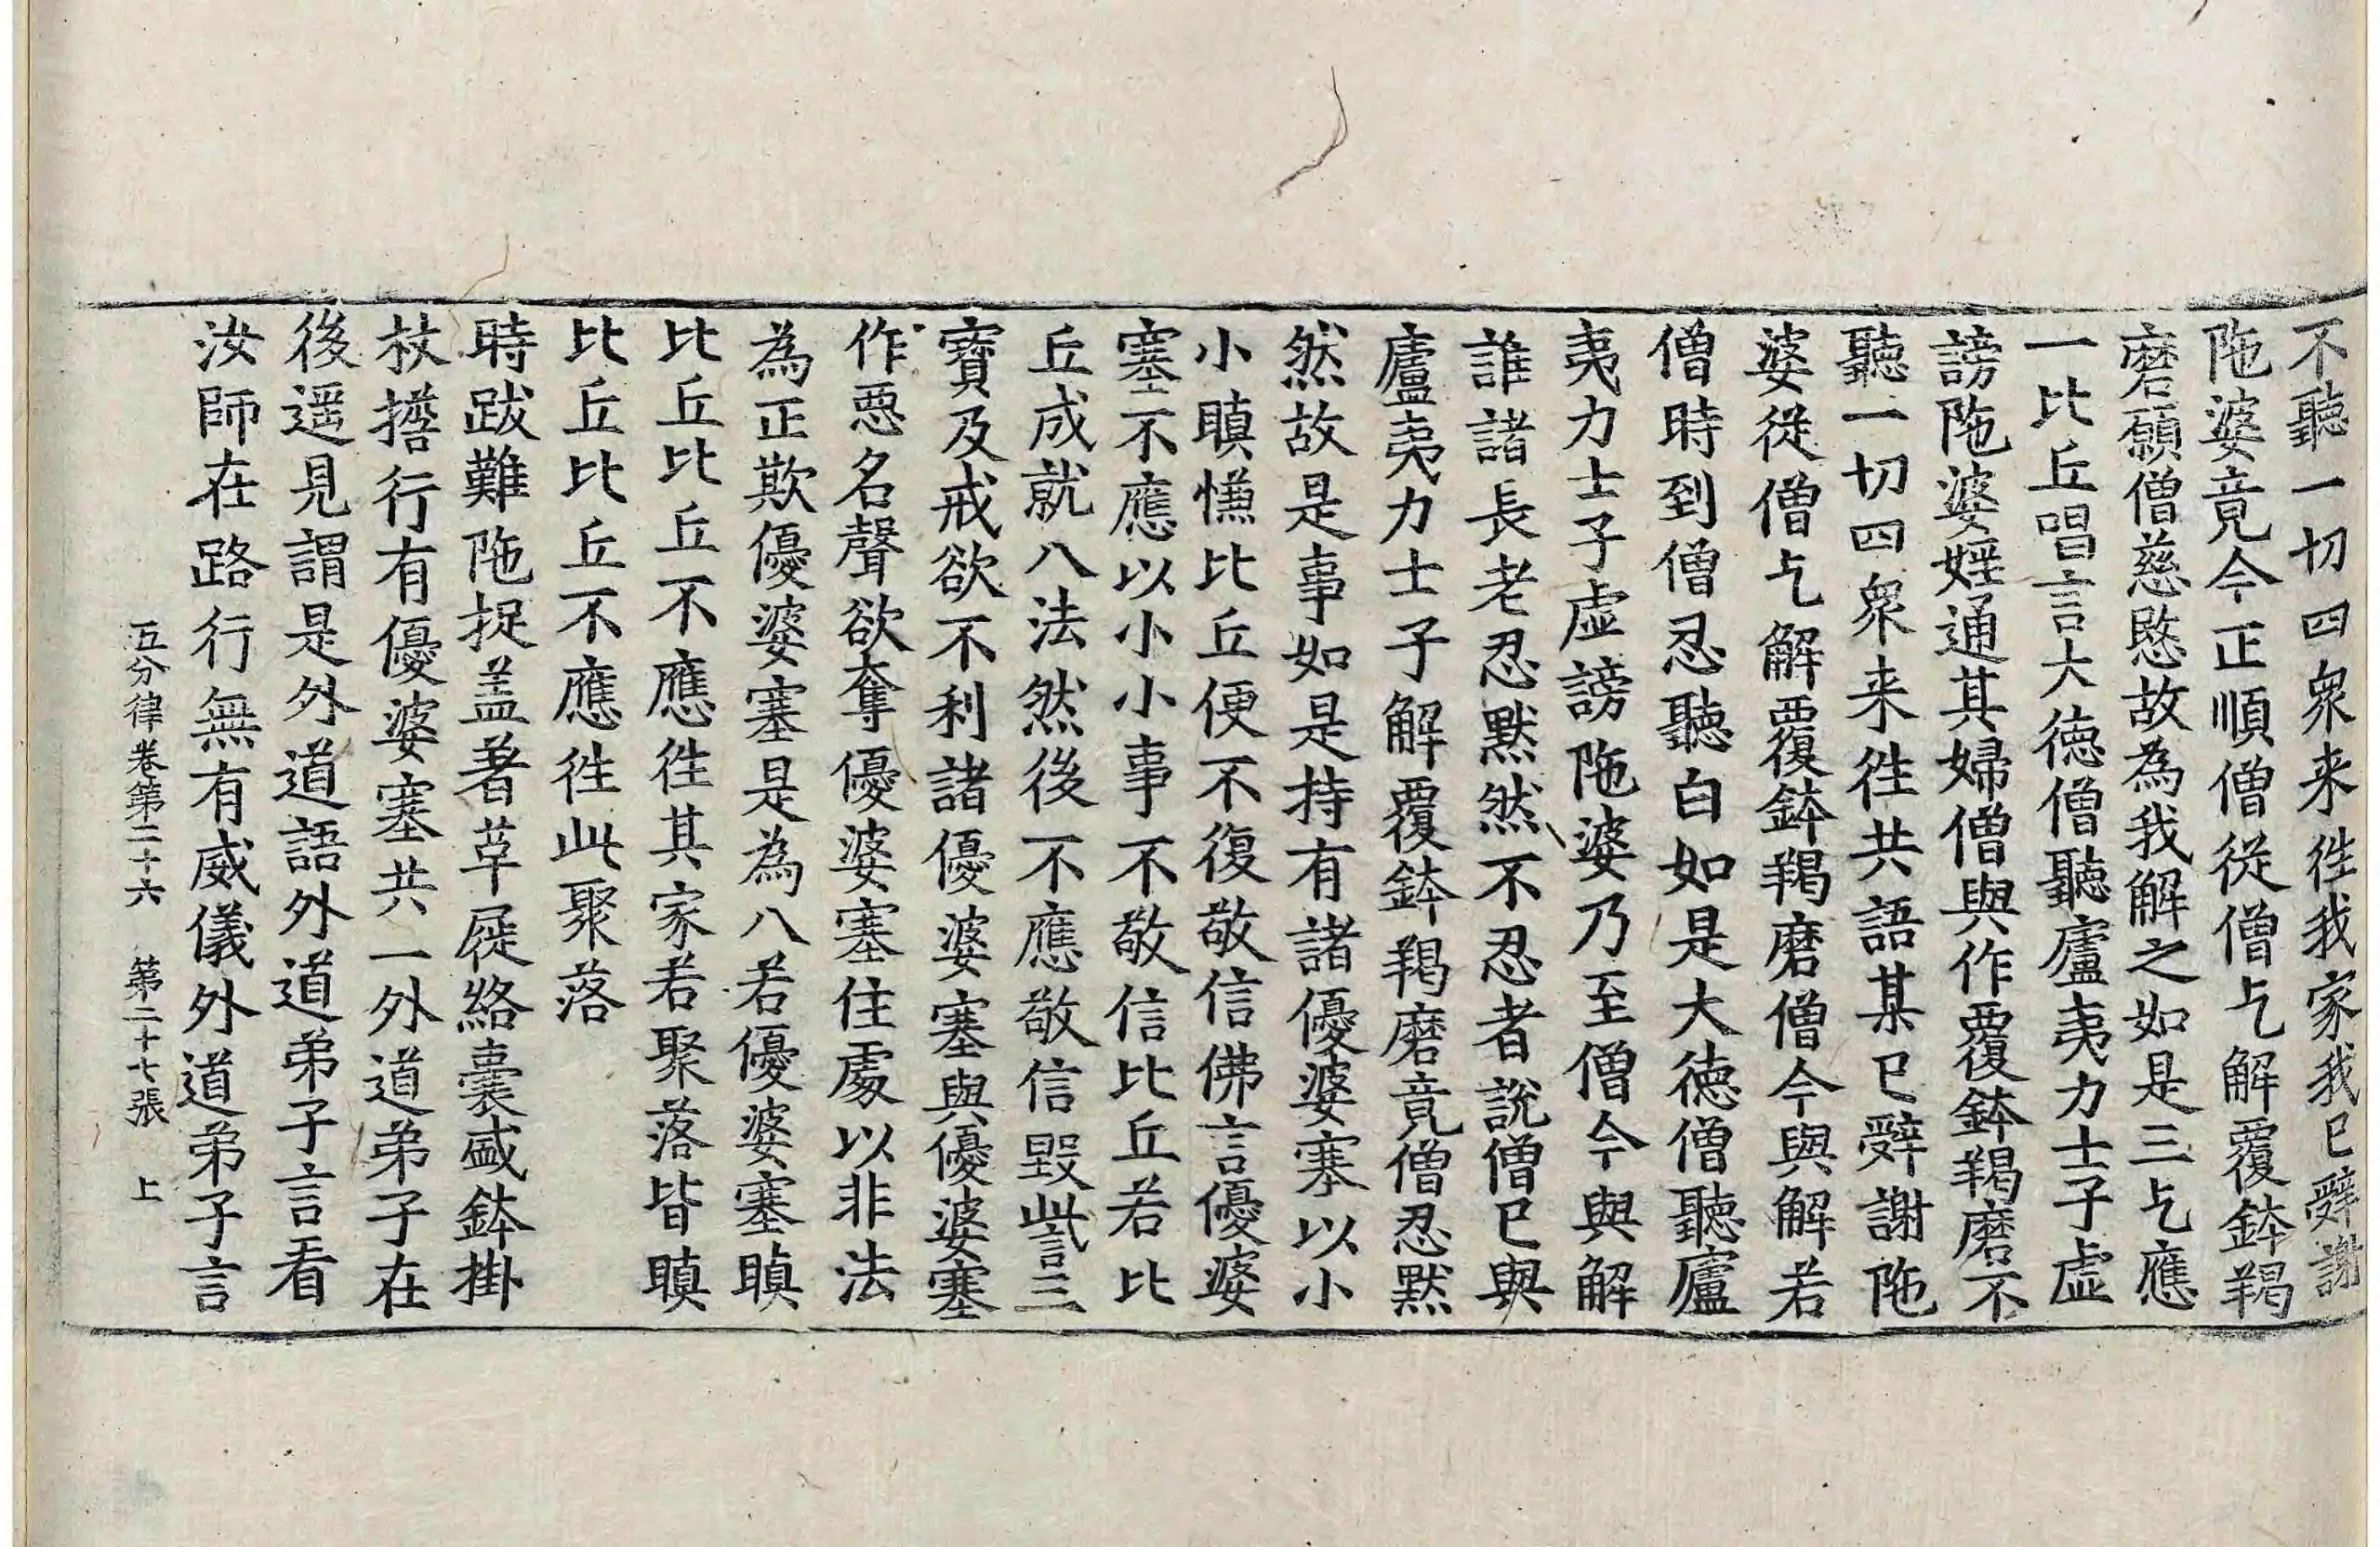 不聽一切四衆来徃我家我已辝謝
陁婆竟今正順僧從僧乞解覆鉢羯
磨願僧慈愍故為我解之如是三乞應
一比丘唱言大徳僧聽廬夷力士子虛
謗陁婆婬通其婦僧與作覆鉢羯磨不
聽一切四衆来徃共語某已辝謝陁
婆從僧乞解覆鉢羯磨僧今與解若
僧時到僧忍聽白如是大徳僧聽廬
夷力士子虛謗陁婆乃至僧今與解
誰諸長老忍默然不忍者說僧已與
廬夷力士子解覆鉢羯磨竟僧忍默
然故是事如是持有諸優婆塞以小
小瞋慊比丘便不復敬信佛言優婆
塞不應以小小事不敬信比丘若比
丘成就八法然後不應敬信毀呰三
寶及戒欲不利諸優婆塞與優婆塞
作惡名聲欲奪優婆塞住處以非法
為正欺優婆塞是為八若優婆塞瞋
比丘比丘不應徃其家若聚落皆瞋
比丘比丘不應徃此聚落
時跋難陁捉盖著草屣絡囊盛鉢掛
杖擔行有優婆塞共一外道弟子在
後遥見謂是外道語外道弟子言看
汝師在路行無有威儀外道弟子言
五分律卷第二十六 第二十七張 上